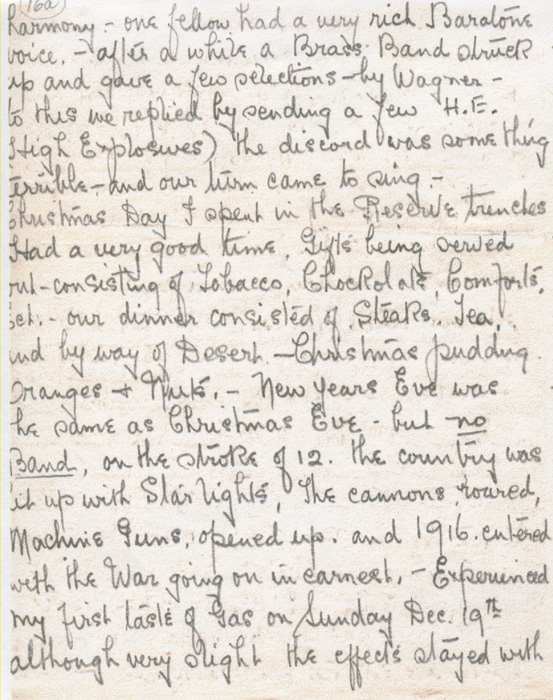 16a
harmony - one fellow had a very rich Baratone
voice. - after a while a Brass Band struck
up and gave a few selections - by Wagner -
to this we replied by sending a few H.E.
High Explosives) the discord was something
terrible - and our turn came to sing. -
Christmas Day I spent in the Reserve trenches
Had a very good time, Gifts being served
out - consisting of Tobacco, Chockolate, Comforts,
ect. - our dinner consisted of Steaks, Tea,
and by way of Desert - Christmas pudding
Oranges + Nuts. - New Years Eve was
the same as Christmas Eve - but no
Band, on the stroke of 12. the country was
lit up with Star lights, The cannons roared,
Machine Guns, opened up. and 1916 entered
with the War going on in earnest. - Experienced
my first taste of Gas on Sunday Dec. 19th
although very slight the effects stayed with